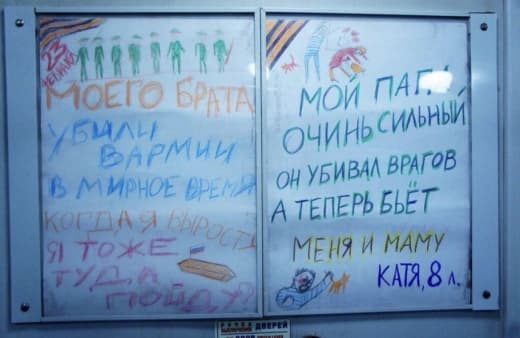 23
ФЕВРАЛЯ
МОЕГО БРАТА
УБИЛИ
ВАРМИИ
В МИРНОЕ ВРЕМЯ
КОГДА Я ВЫРОСТУ
Я ТОЖЕ
ТУДА
ПОЙДУ?
МОЙ ПАПА
ОЧИНЬ СИЛЬНЫЙ
ОН УБИВАЛ ВРАГОВ
А ТЕПЕРЬ БЬЁТ
МЕНЯ И МАМУ
КАТЯ, 8 л.
ДВЕРЕЙ